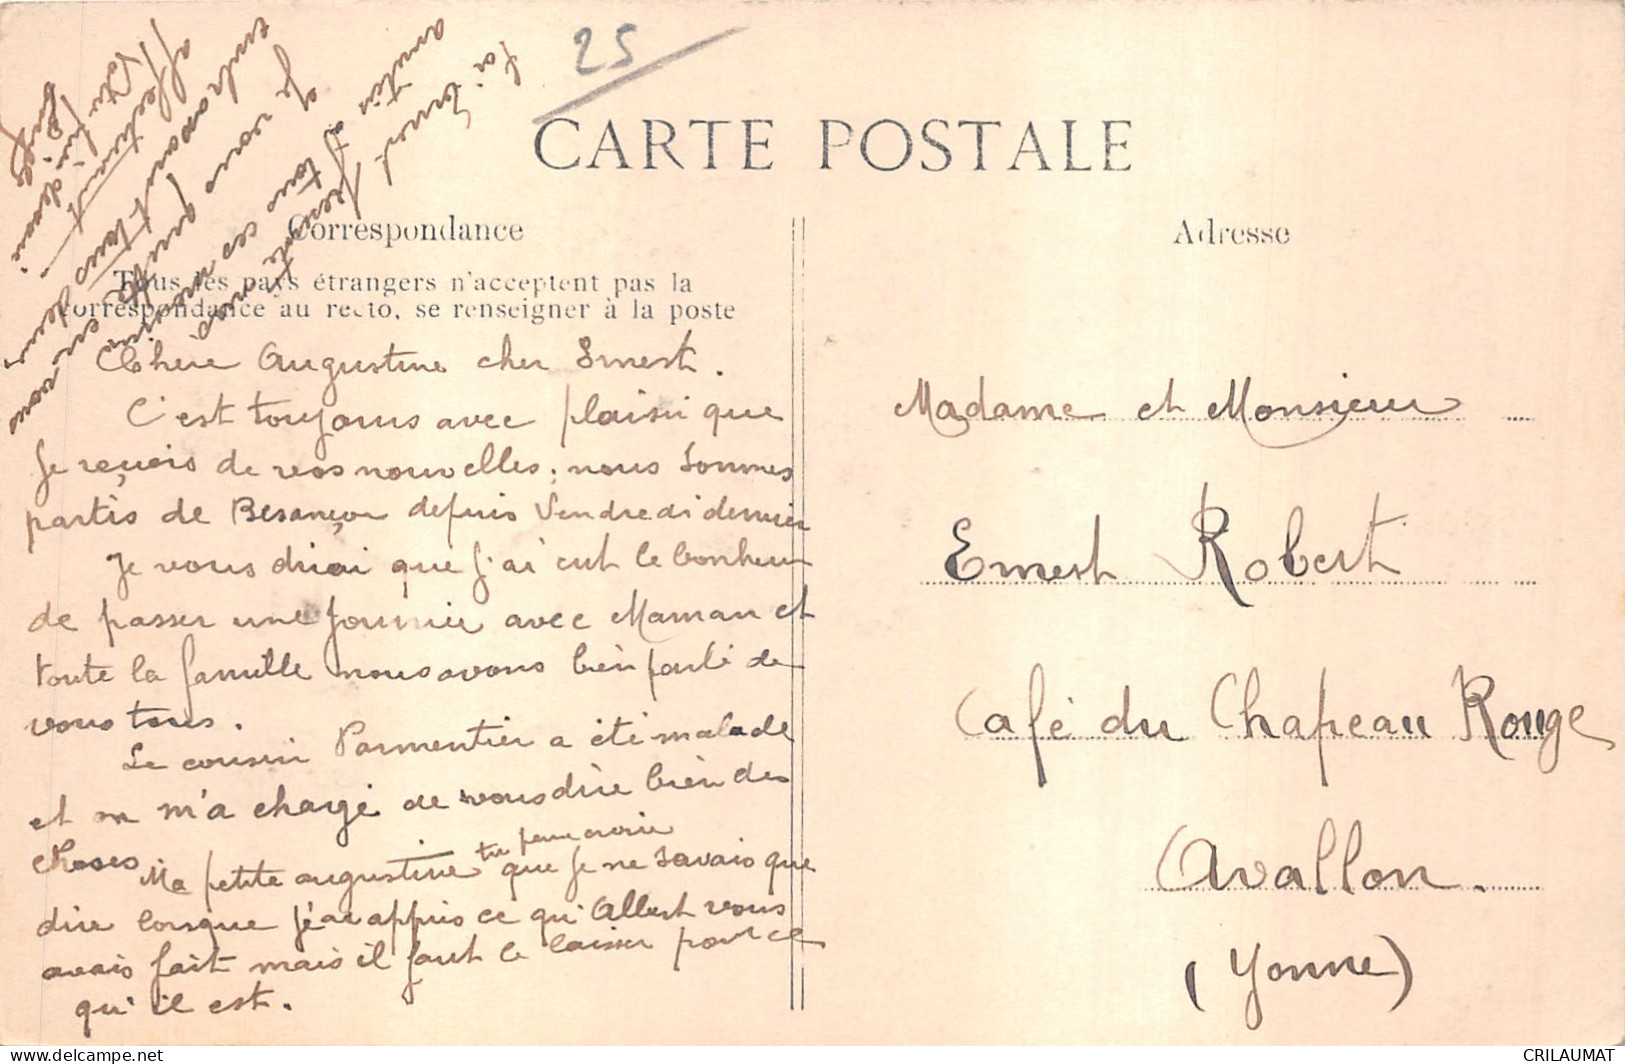 25
CARTE POSTALE
Correspondance
Tous les pays étrangers n'acceptent pas la
correspondance au recto, se renseigner à la poste
Adresse
Chère Augustine cher Ernest.
C'est toujours avec plaisir que
je reçois de vos nouvelles; nous sommes
partis de Besançon depuis Vendredi dernier
Je vous dirai que j'ai eut le bonheur
de passer une journée avec Maman et
toute la famille nous avons bien parlé de
vous tous.
Le cousin Parmentier a été malade
et on m'a chargé de vous dire bien des
choses
Ma petite augustine tu peux croire que je ne savais que
dire lorsque j'ai appris ce qu'Albert vous
avais fait mais il faut le laisser pour ce
qu'il est.
amitiés à tous ses
Je vous quitte en vous
embrassant tous deux
affectueusement
Madame et Monsieur
Ernest Robert
Café du Chapeau Rouge
Avallon.
(Yonne)
CRILAUMAT